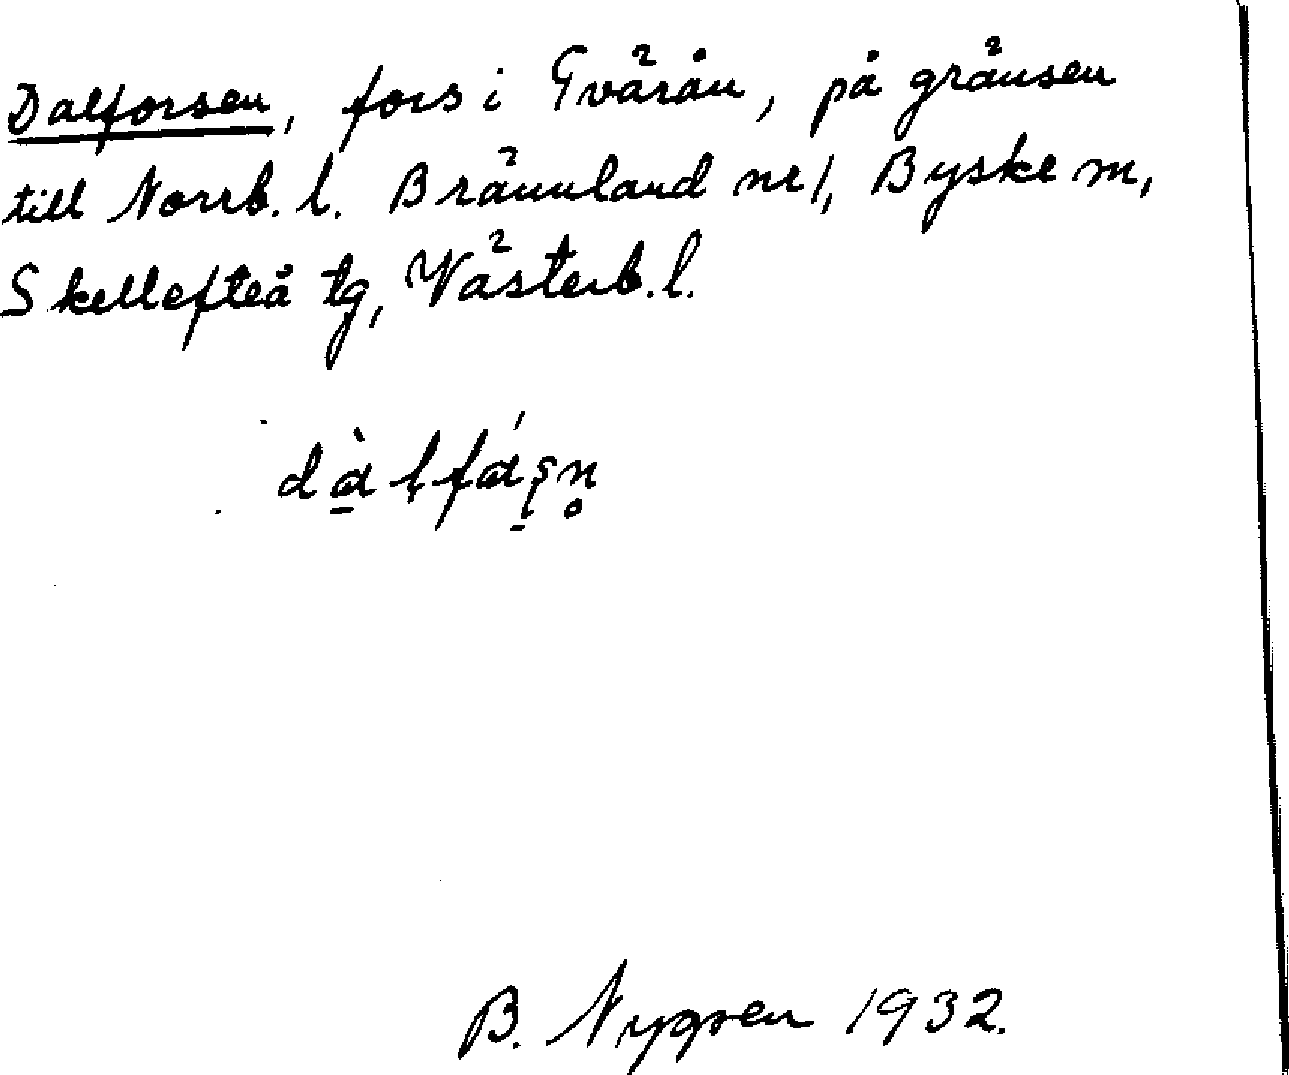 Dalforsen, fors i Tvärån, på gränsen
till Norrb. l. Brännland nr 1, Byske m,
Skellefteå tg, Västerb. l.
B. Nygren 1932.